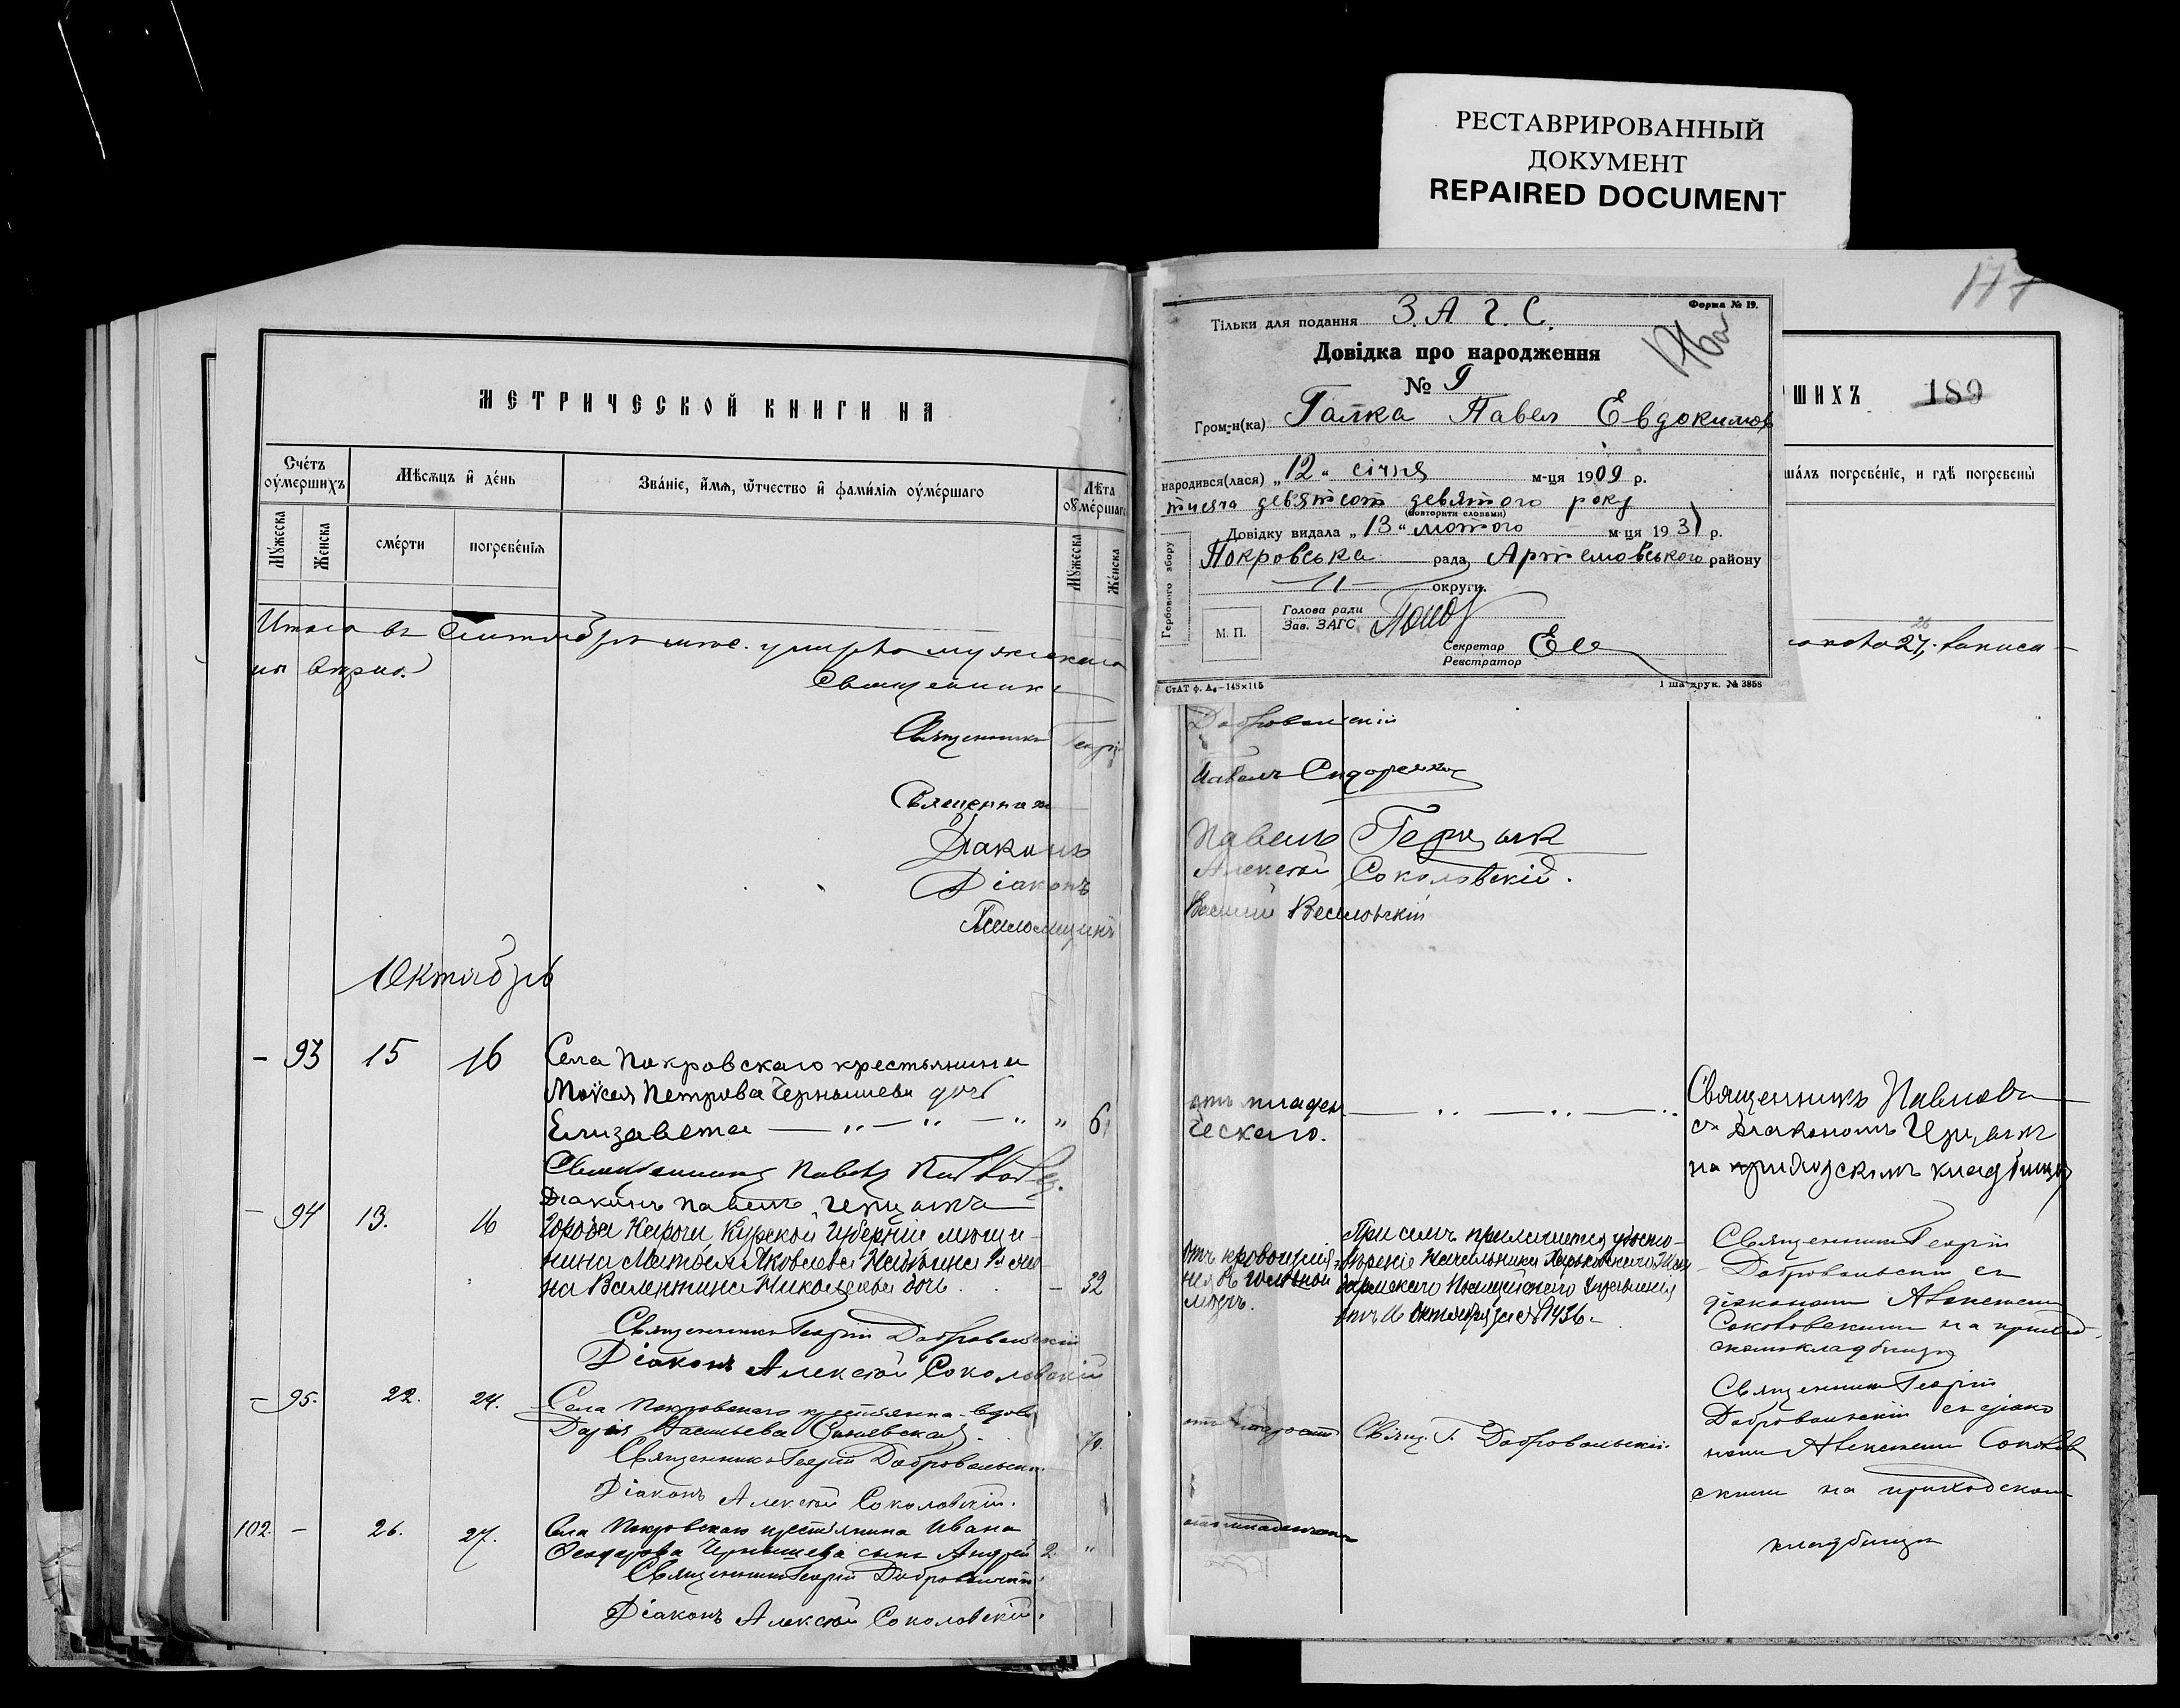 РЕСТАВРИРОВАННЫЙ
ДОКУМЕНТ
REPAIRED DOCUMENT
МЕТРИЧЕСКОЙ КНИГИ НА
Счéтъ оу҆мершихъ
Мѣсѧцъ и҆ дéнь
Звáнїе, и҆́мѧ, ѿчество и҆ фамѝлїѧ оу҆мéршаго
Лѣта оу҆мéршаго
Мꙋжеска
Женска
смéрти
погребéнїѧ
Мꙋжеска
Жéнска
Итого въ Сентябрѣ мѣс. умерло мужескаго
Священникъ
Священникъ
Священникъ
Діаконъ
Діаконъ
Псаломщикъ
Октябрь
– 93 15 16 Села Покровскаго крестьянина
Моѵсея Петрова Чернышева дочь
Елизавета " 6
Священникъ Павелъ
Діаконъ Павелъ Герцыкъ
– 94 13. 16 Города Корочи Курской Губерніи мѣща-
нина Яковлева
на Валентина Николаева дочь – 32
Священникъ Георгій Добровольскій
Діаконъ Алексѣй Соколовскій
– 95. 22. 24. Села Покровскаго крестьянка-вдова
Дарія Васильева 70.
Священникъ Георгій Добровольскій.
Діаконъ Алексѣй Соколовскій.
102. – 26. 27. Села Покровскаго крестьянина Ивана
Ѳеодорова Чернышева сынъ Андрей 2. "
Священникъ Георгій Добровольскій
Діаконъ Алексѣй Соколовскій.
177
Форма № 19.
Тільки для подання З.А.Г.С.
176а
Довідка про народження
№ 9
Гром-н(ка) Галка Павел Евдокимов
народився(лася) „12" січня м-ця 1909 р.
тисяча девятсот девятого року
(повторити словами)
Довідку видала „13" лютого м-ця 1931 р.
Покровська рада Артемовського району
— 11 — округи.
Гербового збору
М. П.
Голова ради
Зав. ЗАГС
Секретар
Реєстратор
СтАТ ф. А₆–148×105
1 ша друк. № 3858
ШИХЪ 189
шáлъ погребéнїе, и гдѣ погребены̀
27,
Добровольскій
Павелъ Сидоренко
Павелъ Герцыкъ
Алексѣй Соколовскій.
Василій Веселовскій
отъ младен-
ческаго.
Священникъ Павловъ
съ Діакономъ Герцыкъ
на приходскомъ кладбищѣ
отъ кровоизлія-
нія въ головной
мозгъ.
При семъ прилагается удосто-
вѣреніе Начальника Харьковскаго Жан-
дармскаго Полицейскаго Управленія
отъ 16 Октября за № 1436.
Священникъ Георгій
Добровольскій съ
діакономъ Алексѣемъ
Соколовскимъ на приход-
скомъ кладбищѣ
отъ старости
Священ. Г. Добровольскій.
Священникъ Георгій
Добровольскій съ діако
номъ Алексѣемъ Соколов
скимъ на приходскомъ
кладбищѣ
отъ младенческ.